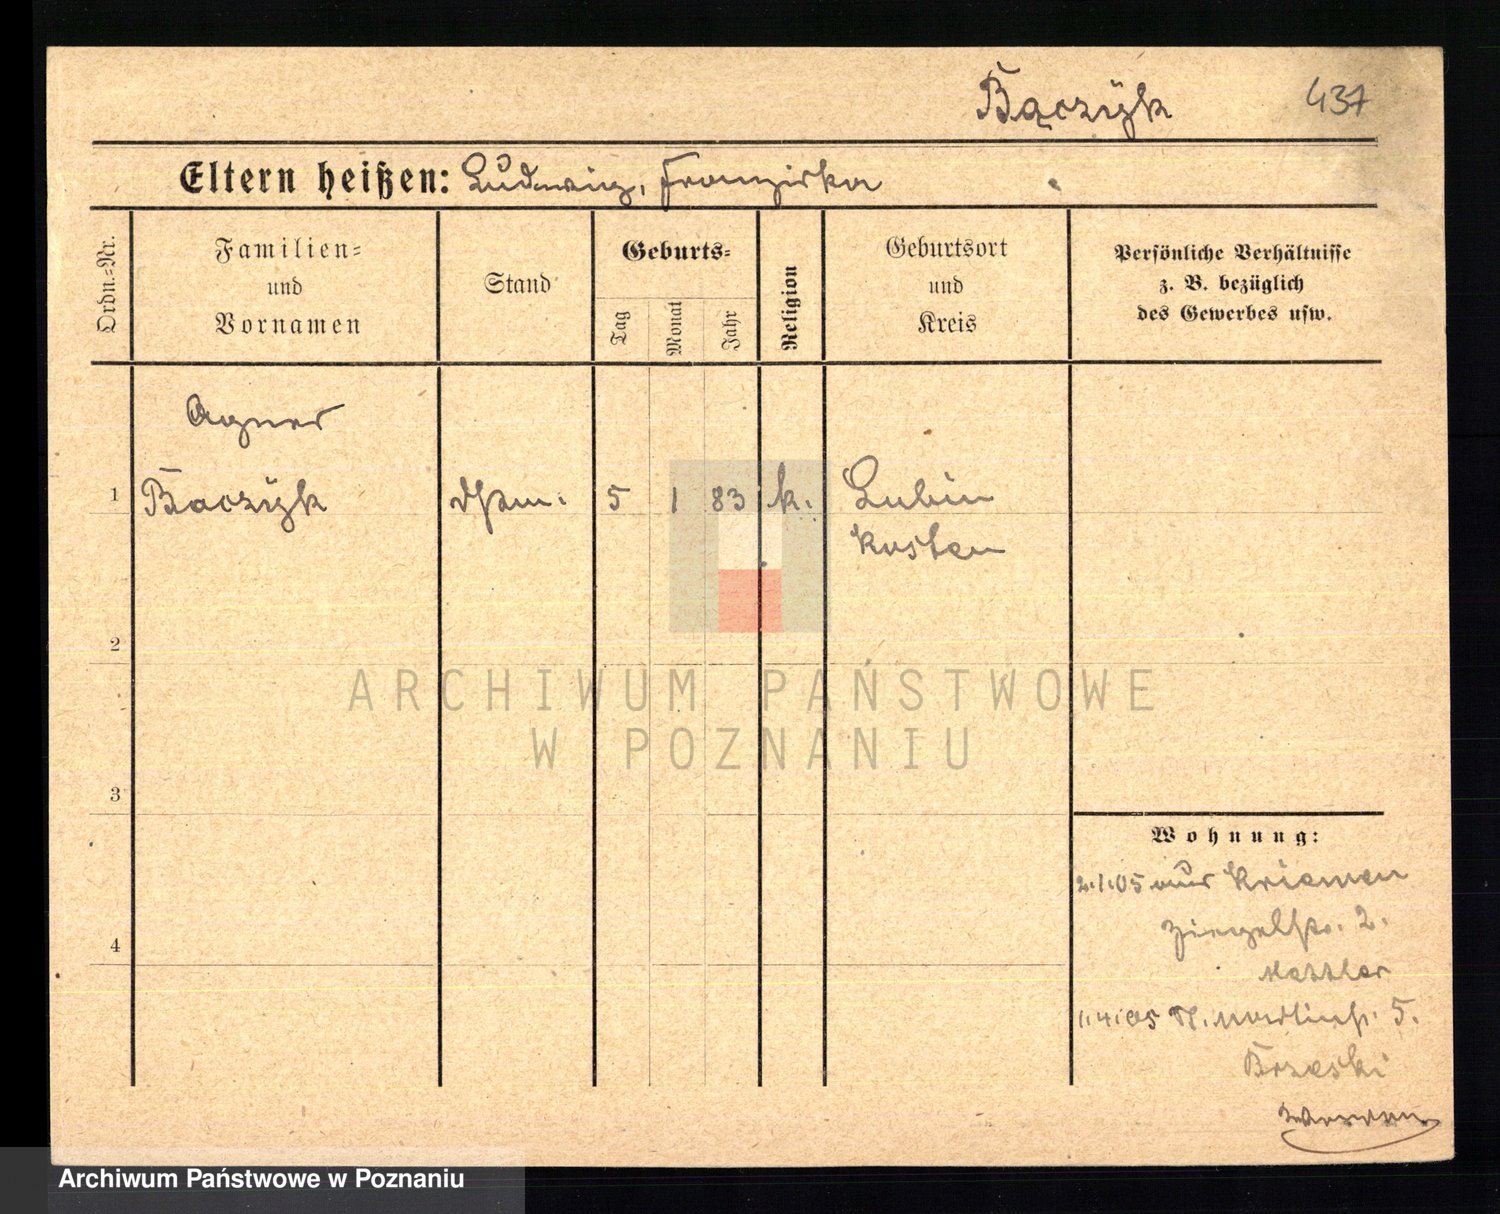 Bączyk 437
Eltern heißen: Ludwig, Franziska
Ordn.-Nr.
Familien-
und
Vornamen
Stand
Geburts-
Tag
Monat
Jahr
Religion
Geburtsort
und
Kreis
Persönliche Verhältnisse
z. B. bezüglich
des Gewerbes usw.
Agnes
1 Baczyk 5 1 83 k. Lubin
Kosten
2
3
4
Wohnung:
2.1.05 aus Kriewen
Ziegelstr. 2.
1.4.05 5.
Brzeski
ARCHIWUM PAŃSTWOWE
W POZNANIU
Archiwum Państwowe w Poznaniu